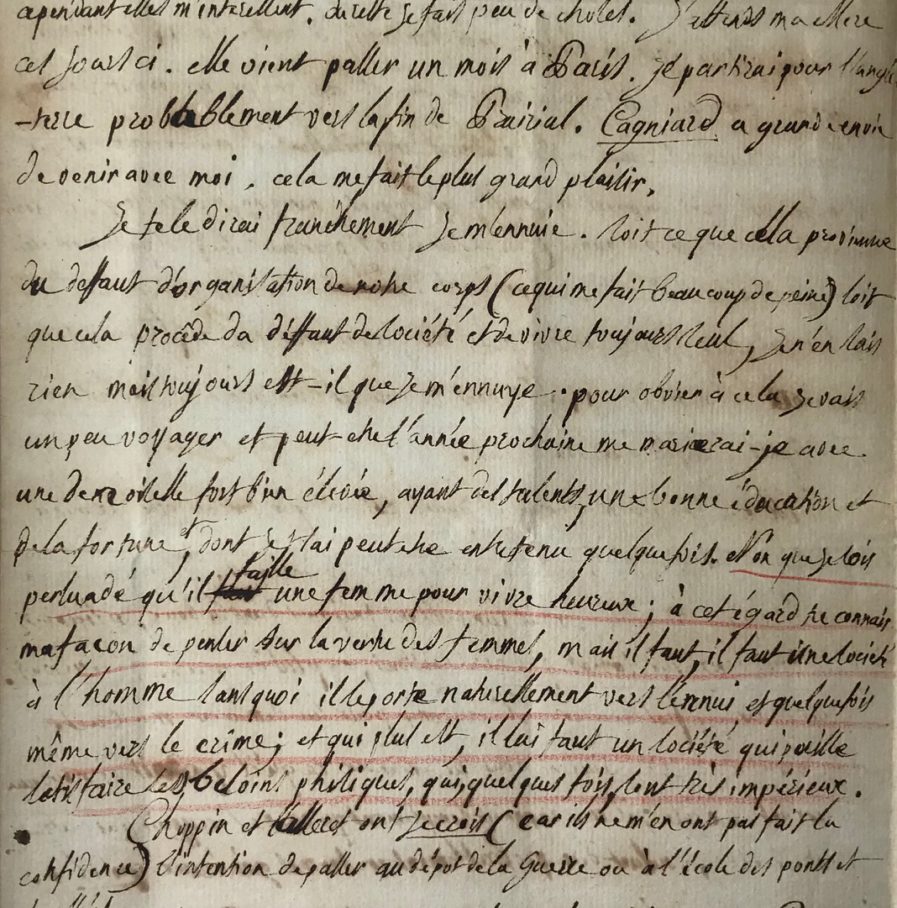 cependant elles m'interessent. du reste je fais peu de choses. J'attends ma mere
ces jours ci. elle vient passer un mois à Paris. je partirai pour l'angle
-terre problablement vers la fin de Prairial. Cagniard a grande envie
de venir avec moi, cela me fait le plus grand plaisir.
Je te le dirai franchement je m'ennuie. soit ce que cella provienne
du deffaut d'organisation de notre corps (ce qui me fait beaucoup de peine) soit
que cela procède du deffaut de société et de vivre toujours seul, je n'en sais
rien mais toujours est-il que je m'ennuye. pour obvier à cela je vais
un peu voyager et peut-etre l'année prochaine me marierai-je avec
une demoiselle fort bien élevée, ayant des talents, une bonne éducation et
de la fortune et dont je t'ai peut etre entretenu quelquefois. Non que je sois
persuadé qu'il faille une femme pour vivre heureux; à cet égard tu connais
ma façon de penser sur la vertu des femmes, mais il faut, il faut une société
à l'homme sans quoi il se porte naturellement vers l'ennui et quelquefois
même vers le crime; et qui plus est, il lui faut un société qui puisse
satisfaire ses besoins phisiques, qui, quelques fois, sont très impérieux.
Choppin et ont je crois (car ils ne m'en ont pas fait la
confidence) l'intention de passer au dépot de la Guerre ou à l'école des ponts et